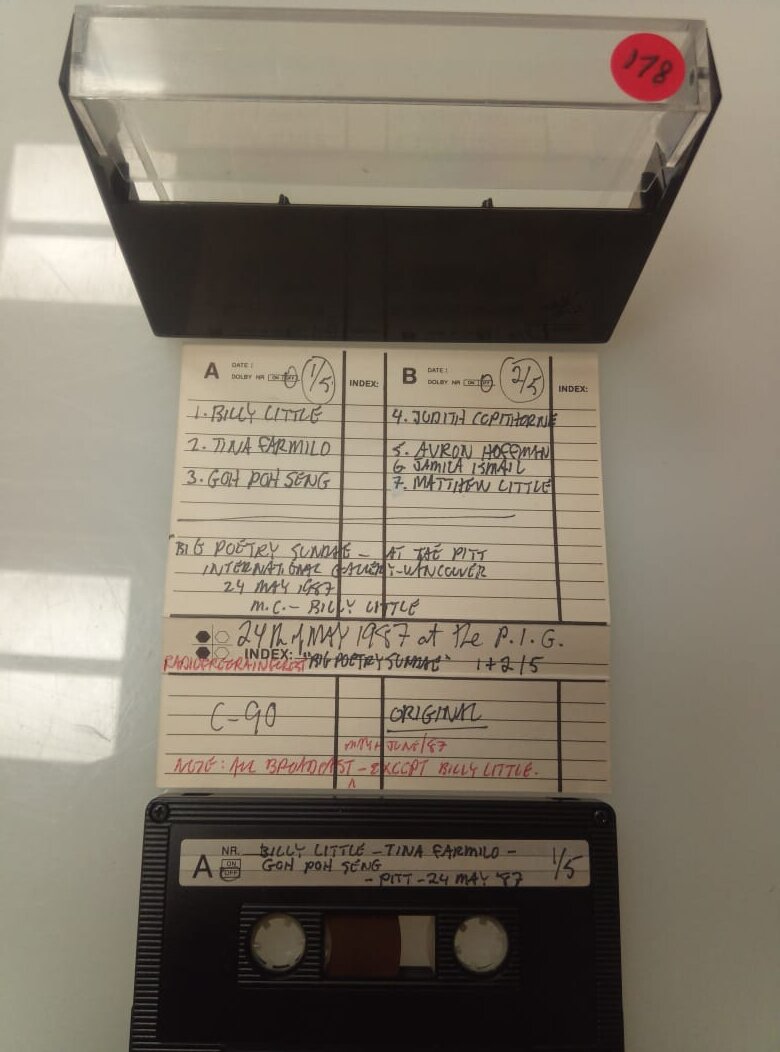 178
A DATE: 1/5 INDEX: B DATE: 2/5 INDEX:
DOLBY NR ON OFF DOLBY NR ON OFF
1. BILLY LITTLE
2. TINA FARMILO
3. GOH POH SENG
4. JUDITH COPITHORNE
5. AVRON HOFFMAN
6 JAMILA ISMAIL
7. MATTHEW LITTLE
"BIG POETRY SUNDAE - AT THE PITT
INTERNATIONAL GALLERY - VANCOUVER
24 MAY 1987
M.C. - BILLY LITTLE
24th of MAY 1987 at the P.I.G.
RADIOFREERAINFOREST INDEX: "BIG POETRY SUNDAE" 1+2/5
C-90 ORIGINAL
MAY + JUNE/87
NOTE: ALL BROADCAST - EXCEPT BILLY LITTLE.
A NR. BILLY LITTLE - TINA FARMILO - 1/5
ON OFF GOH POH SENG
- PITT - 24 MAY '87